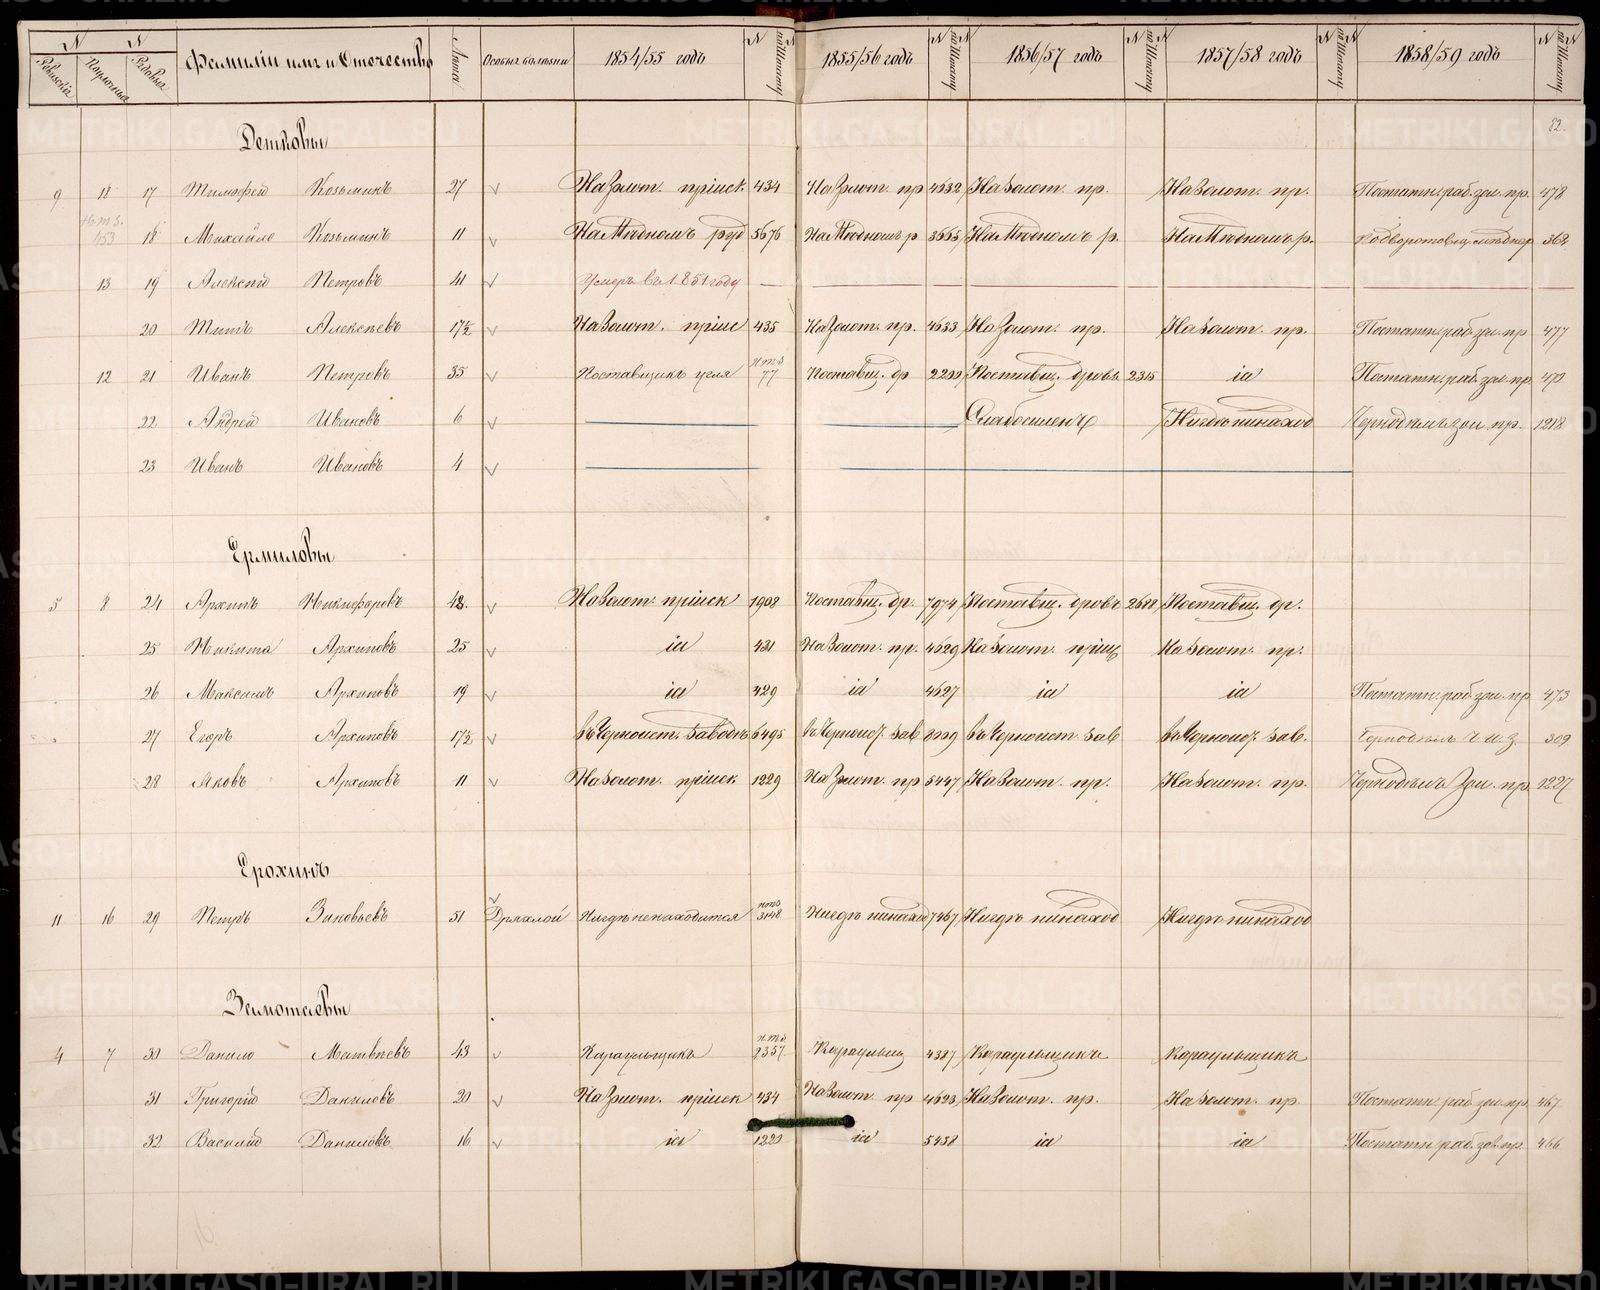 N Ревизскія
N Порочныя
N Рядовыя
Фамиліи имя и Отечество
Лѣта
Особыя болѣзни
1854/55 годъ
N
1855/56 годъ
N
1856/57 годъ
N
1857/58 годъ
N
1858/59 годъ
N
82
Детковы
9 18 17 Тимофей Козьминъ 27 На Золот. пріиск. 434 На Золот. пр 4632 На Золот. пр. На Золот. пр. Постатн. раб. зол. пр. 478
153 18 Михайло Козьминъ 11 На Мѣдномъ руд 5676 На Мѣдномъ р 3665 На Мѣдномъ р. На Мѣдномъ р. 362
13 19 Алексѣй Петровъ 41 Умеръ въ 1851 году
20 Титъ Алексѣевъ 17½ На Золот. пріис 435 На Золот. пр. 4633 На Золот. пр. На Золот. пр. Постатн. раб. зол. пр 477
12 21 Иванъ Петровъ 35 Поставщикъ угля 77 Поставщ. др 2299 Поставщ. дровъ 2315 іd Постатн. раб. зол. пр.
22 Андрей Ивановъ 6 Слабосиленъ Нигдѣ нинаход Чернодѣлъ зол. пр. 1218
23 Иванъ Ивановъ 4
Ермиловы
5 8 24 Архипъ Никифоровъ 48. На Золот. пріиск 1908 Поставщ. др. 7974 Поставщ. дровъ 2688 Поставщ. др.
25 Никита Архиповъ 25 іd 431 На Золот. пр. 4629 На Золот. пріис На Золот. пр.
26 Максимъ Архиповъ 19 іd 429 іd 4627 іd іd Постатн. раб. зол. пр 473
27 Егоръ Архиповъ 17½ въ Черноист. Заводѣ 6495 въ Черноис. Зав 8999 въ Черноист. Зав въ Черноис. Зав. Чернодѣлъ Ч. И. З. 309
28 Яковъ Архиповъ 11 На Золот. пріиск 1229 На Золот. пр 5447 На Золот. пр. На Золот. пр. Чернодѣлъ Зол. пр. 1227
Ерохинъ
11 16 29 Петръ Зиновьевъ 51 Дряхлой Нигдѣ ненаходится 3148 Нигдѣ нинаход 7467 Нигдѣ нинаход Нигдѣ нинаход
Замотаевы
4 7 30 Данило Матвѣевъ 43 Караульщикъ 2357 Караульщ 4387 Караульщикъ Караульщикъ
31 Григорій Даниловъ 20 На Золот. пріиск 434 На Золот. пр 4623 На Золот. пр. На Золот. пр. Постатн. раб. зол. пр. 467
32 Василій Даниловъ 16 іd 1223 іd 5438 іd іd Постатн. раб. зол. пр. 466
METRIKI.GASO-URAL.RU